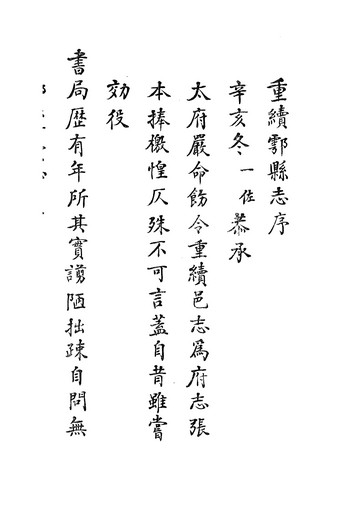 重續鄠縣志序
辛亥冬一佐恭承
太府嚴命飭令重續邑志爲府志張
本捧檄惶仄殊不可言蓋自昔雖嘗
効役
書局歷有年所其實謭陋拙疎自問無